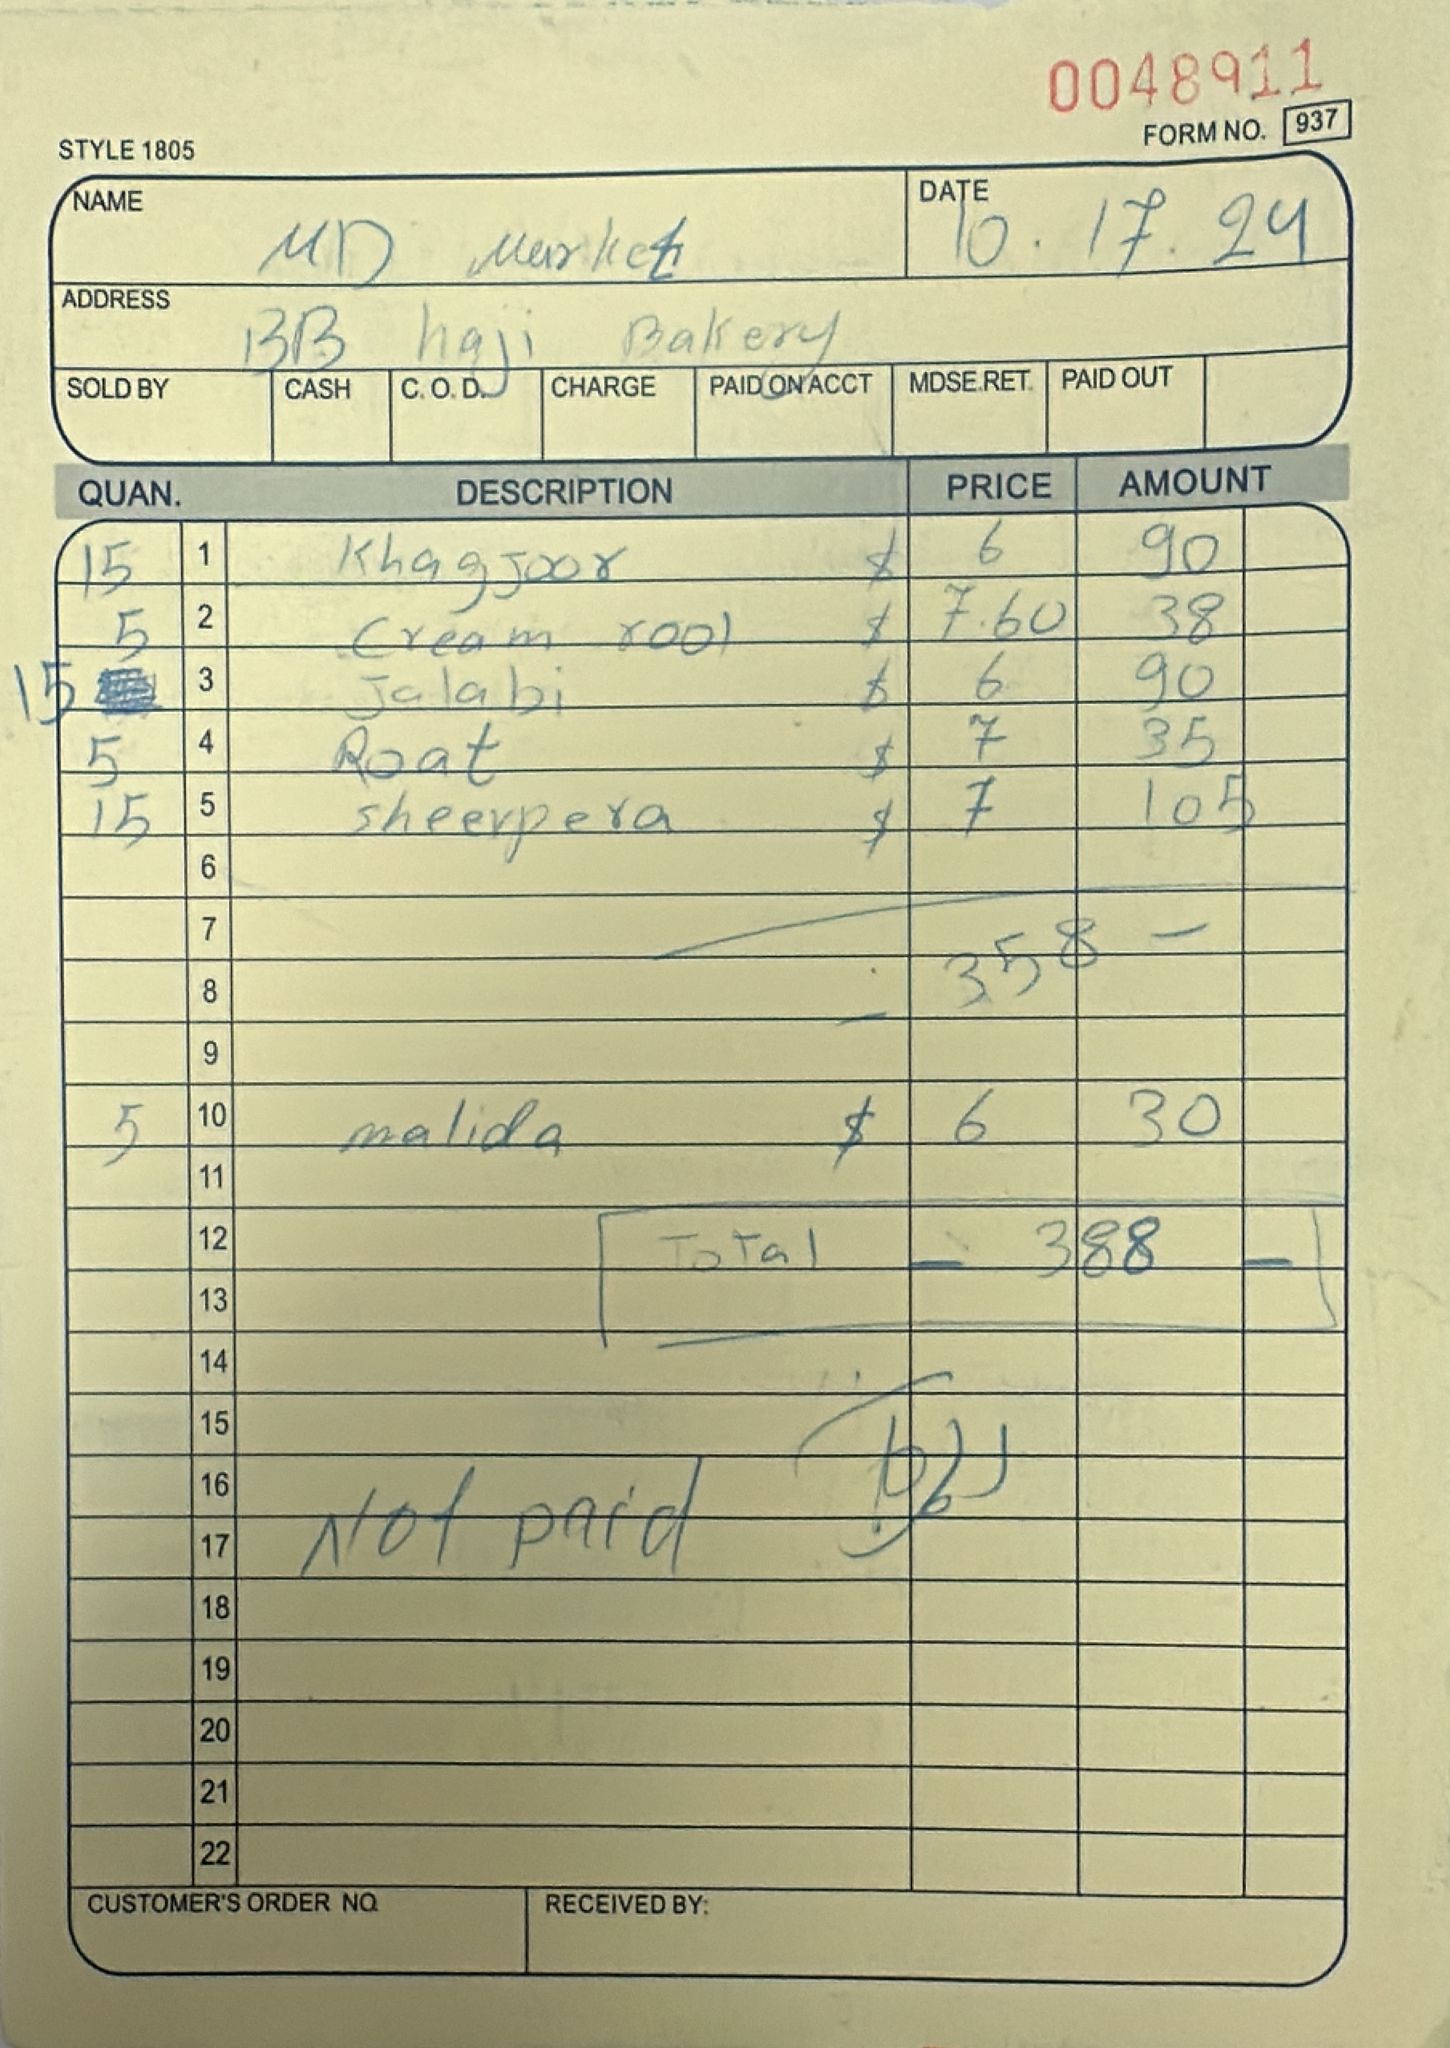 0048911
FORM NO. 937
STYLE 1805
NAME MD Market DATE 10.17.24
ADDRESS BB haji Bakery
SOLD BY CASH C. O. D. CHARGE PAID ON ACCT MDSE.RET. PAID OUT
QUAN. DESCRIPTION PRICE AMOUNT
15 1 Khagjoor $ 6 90
5 2 Cream rool $ 7.60 38
15 3 Jalabi $ 6 90
5 4 Roat $ 7 35
15 5 sheerpera $ 7 105
6
7
358 -
8
9
5 10 malida $ 6 30
11
12 Total - 388 -
13
14
15
16
Not paid
17
18
19
20
21
22
CUSTOMER'S ORDER NO. RECEIVED BY: